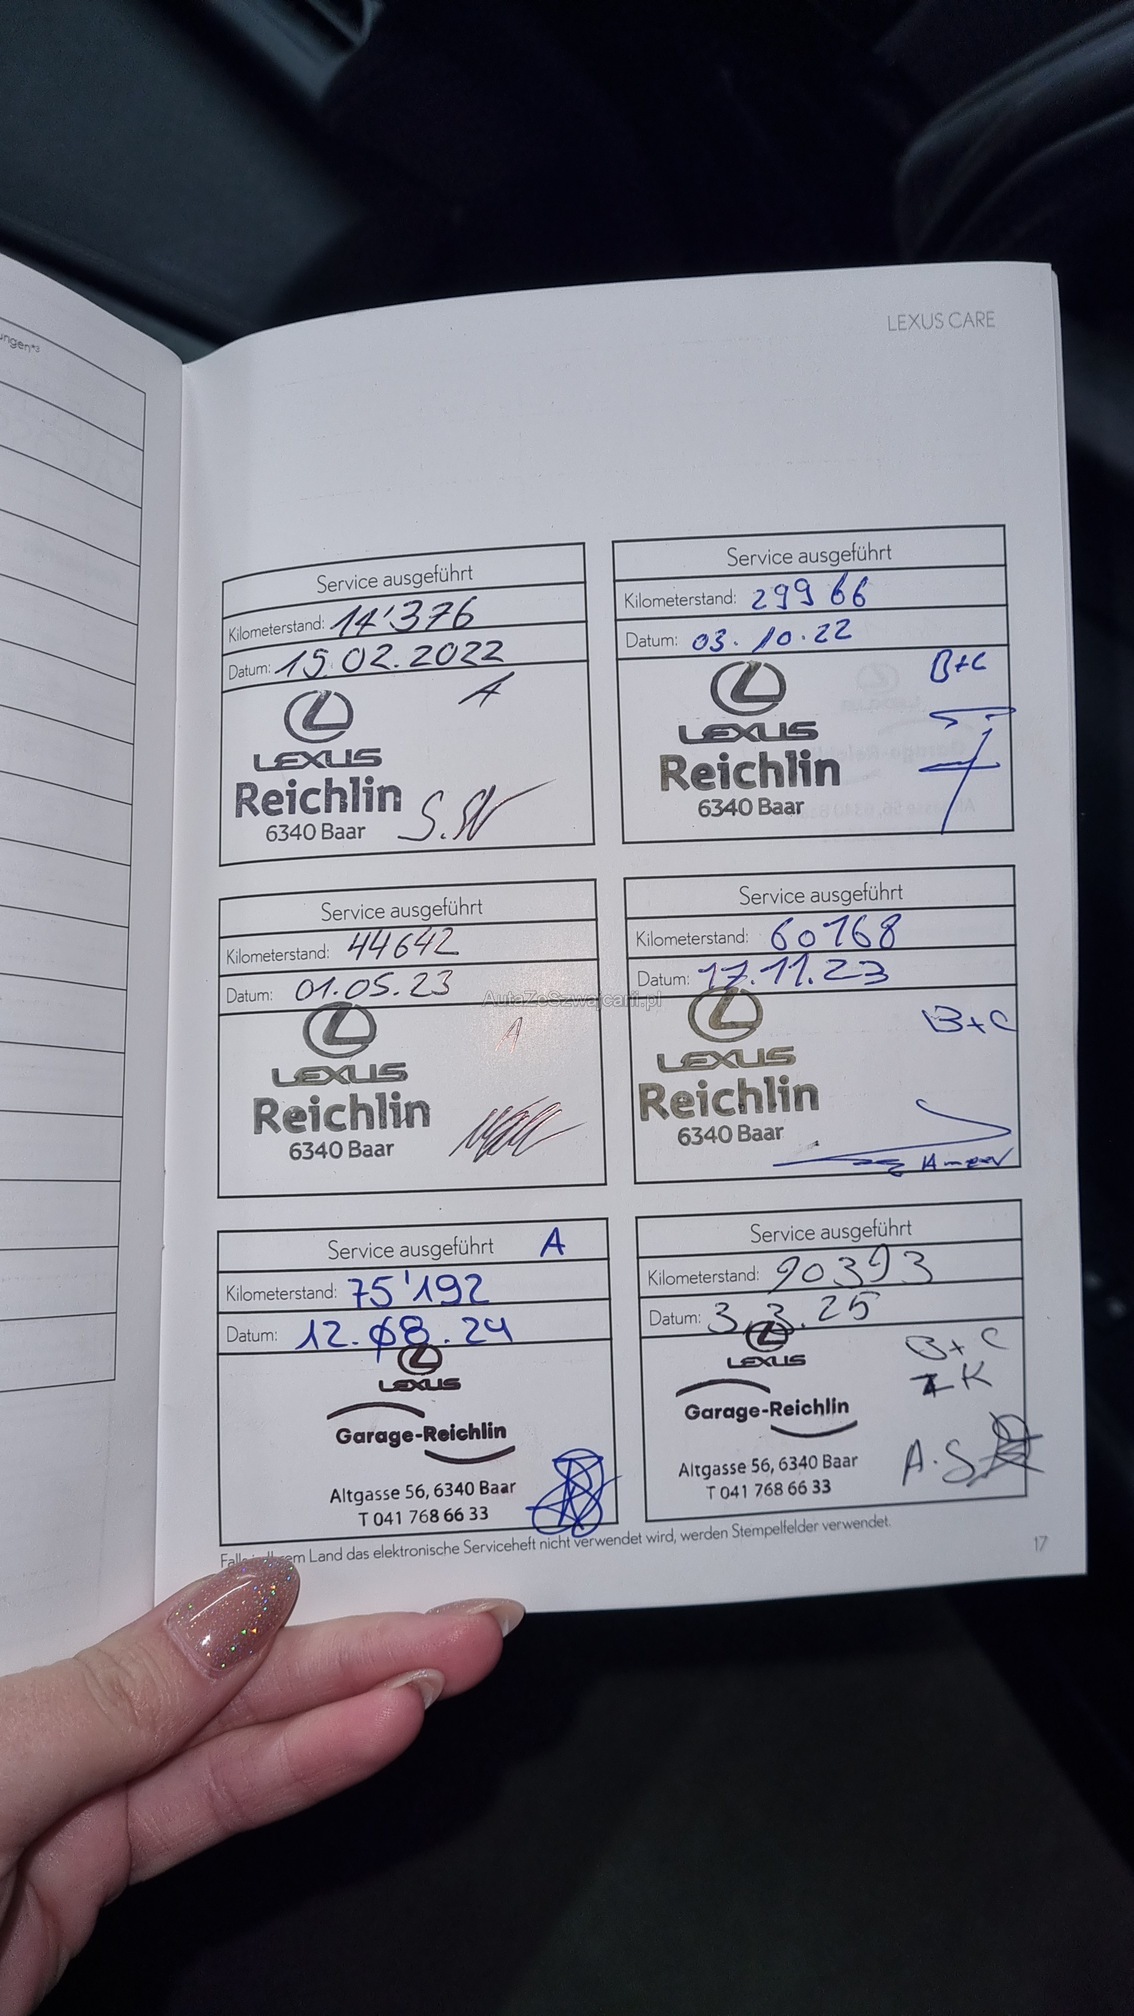 ungen*³
LEXUS CARE
Service ausgeführt
Kilometerstand: 14'376
Datum: 15.02.2022
A
LEXUS
Reichlin
6340 Baar
Service ausgeführt
Kilometerstand: 29966
Datum: 03.10.22
B+C
LEXUS
Reichlin
6340 Baar
Service ausgeführt
Kilometerstand: 44642
Datum: 01.05.23
A
LEXUS
Reichlin
6340 Baar
Service ausgeführt
Kilometerstand: 60168
Datum: 17.11.23
B+C
LEXUS
Reichlin
6340 Baar
AutaZeSzwajcarii.pl
Service ausgeführt A
Kilometerstand: 75'192
Datum: 12.08.24
LEXUS
Garage-Reichlin
Altgasse 56, 6340 Baar
T 041 768 66 33
Service ausgeführt
Kilometerstand: 90393
Datum: 3.3.25
B+C
K
LEXUS
Garage-Reichlin
Altgasse 56, 6340 Baar
T 041 768 66 33
A.S
Land das elektronische Serviceheft nicht verwendet wird, werden Stempelfelder verwendet.
17